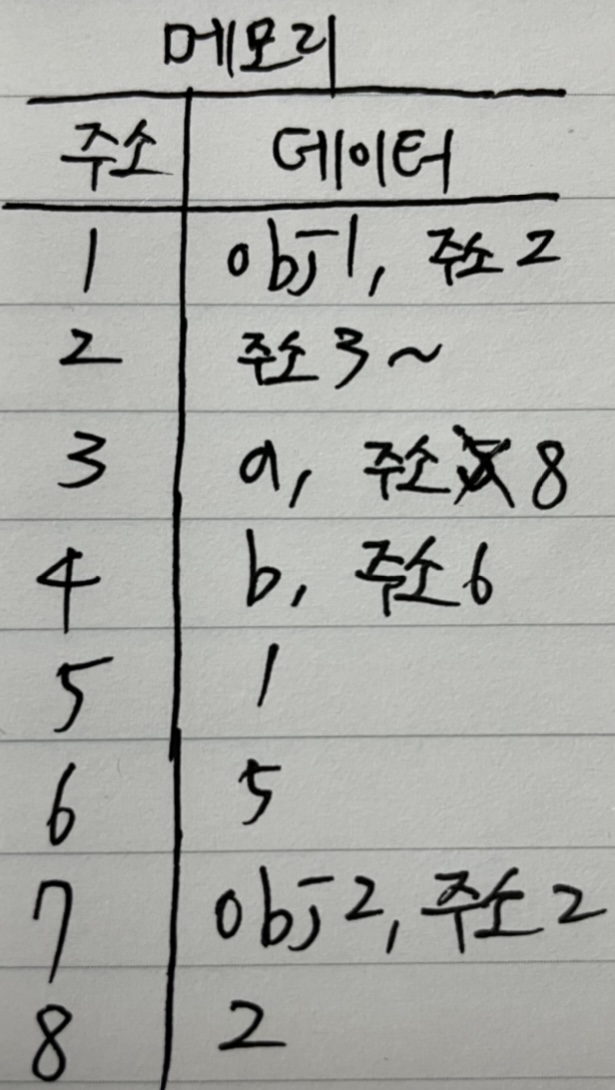 메모리
주소 데이터
1 obj1, 주소 2
2 주소 3 ~
3 a, 주소 8
4 b, 주소 6
5 1
6 5
7 obj2, 주소 2
8 2